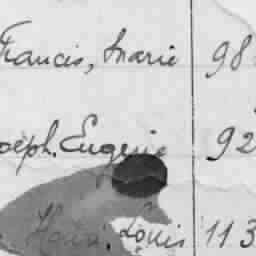 Francis, Marie 98
oseph. Eugénie 92
Louis 113